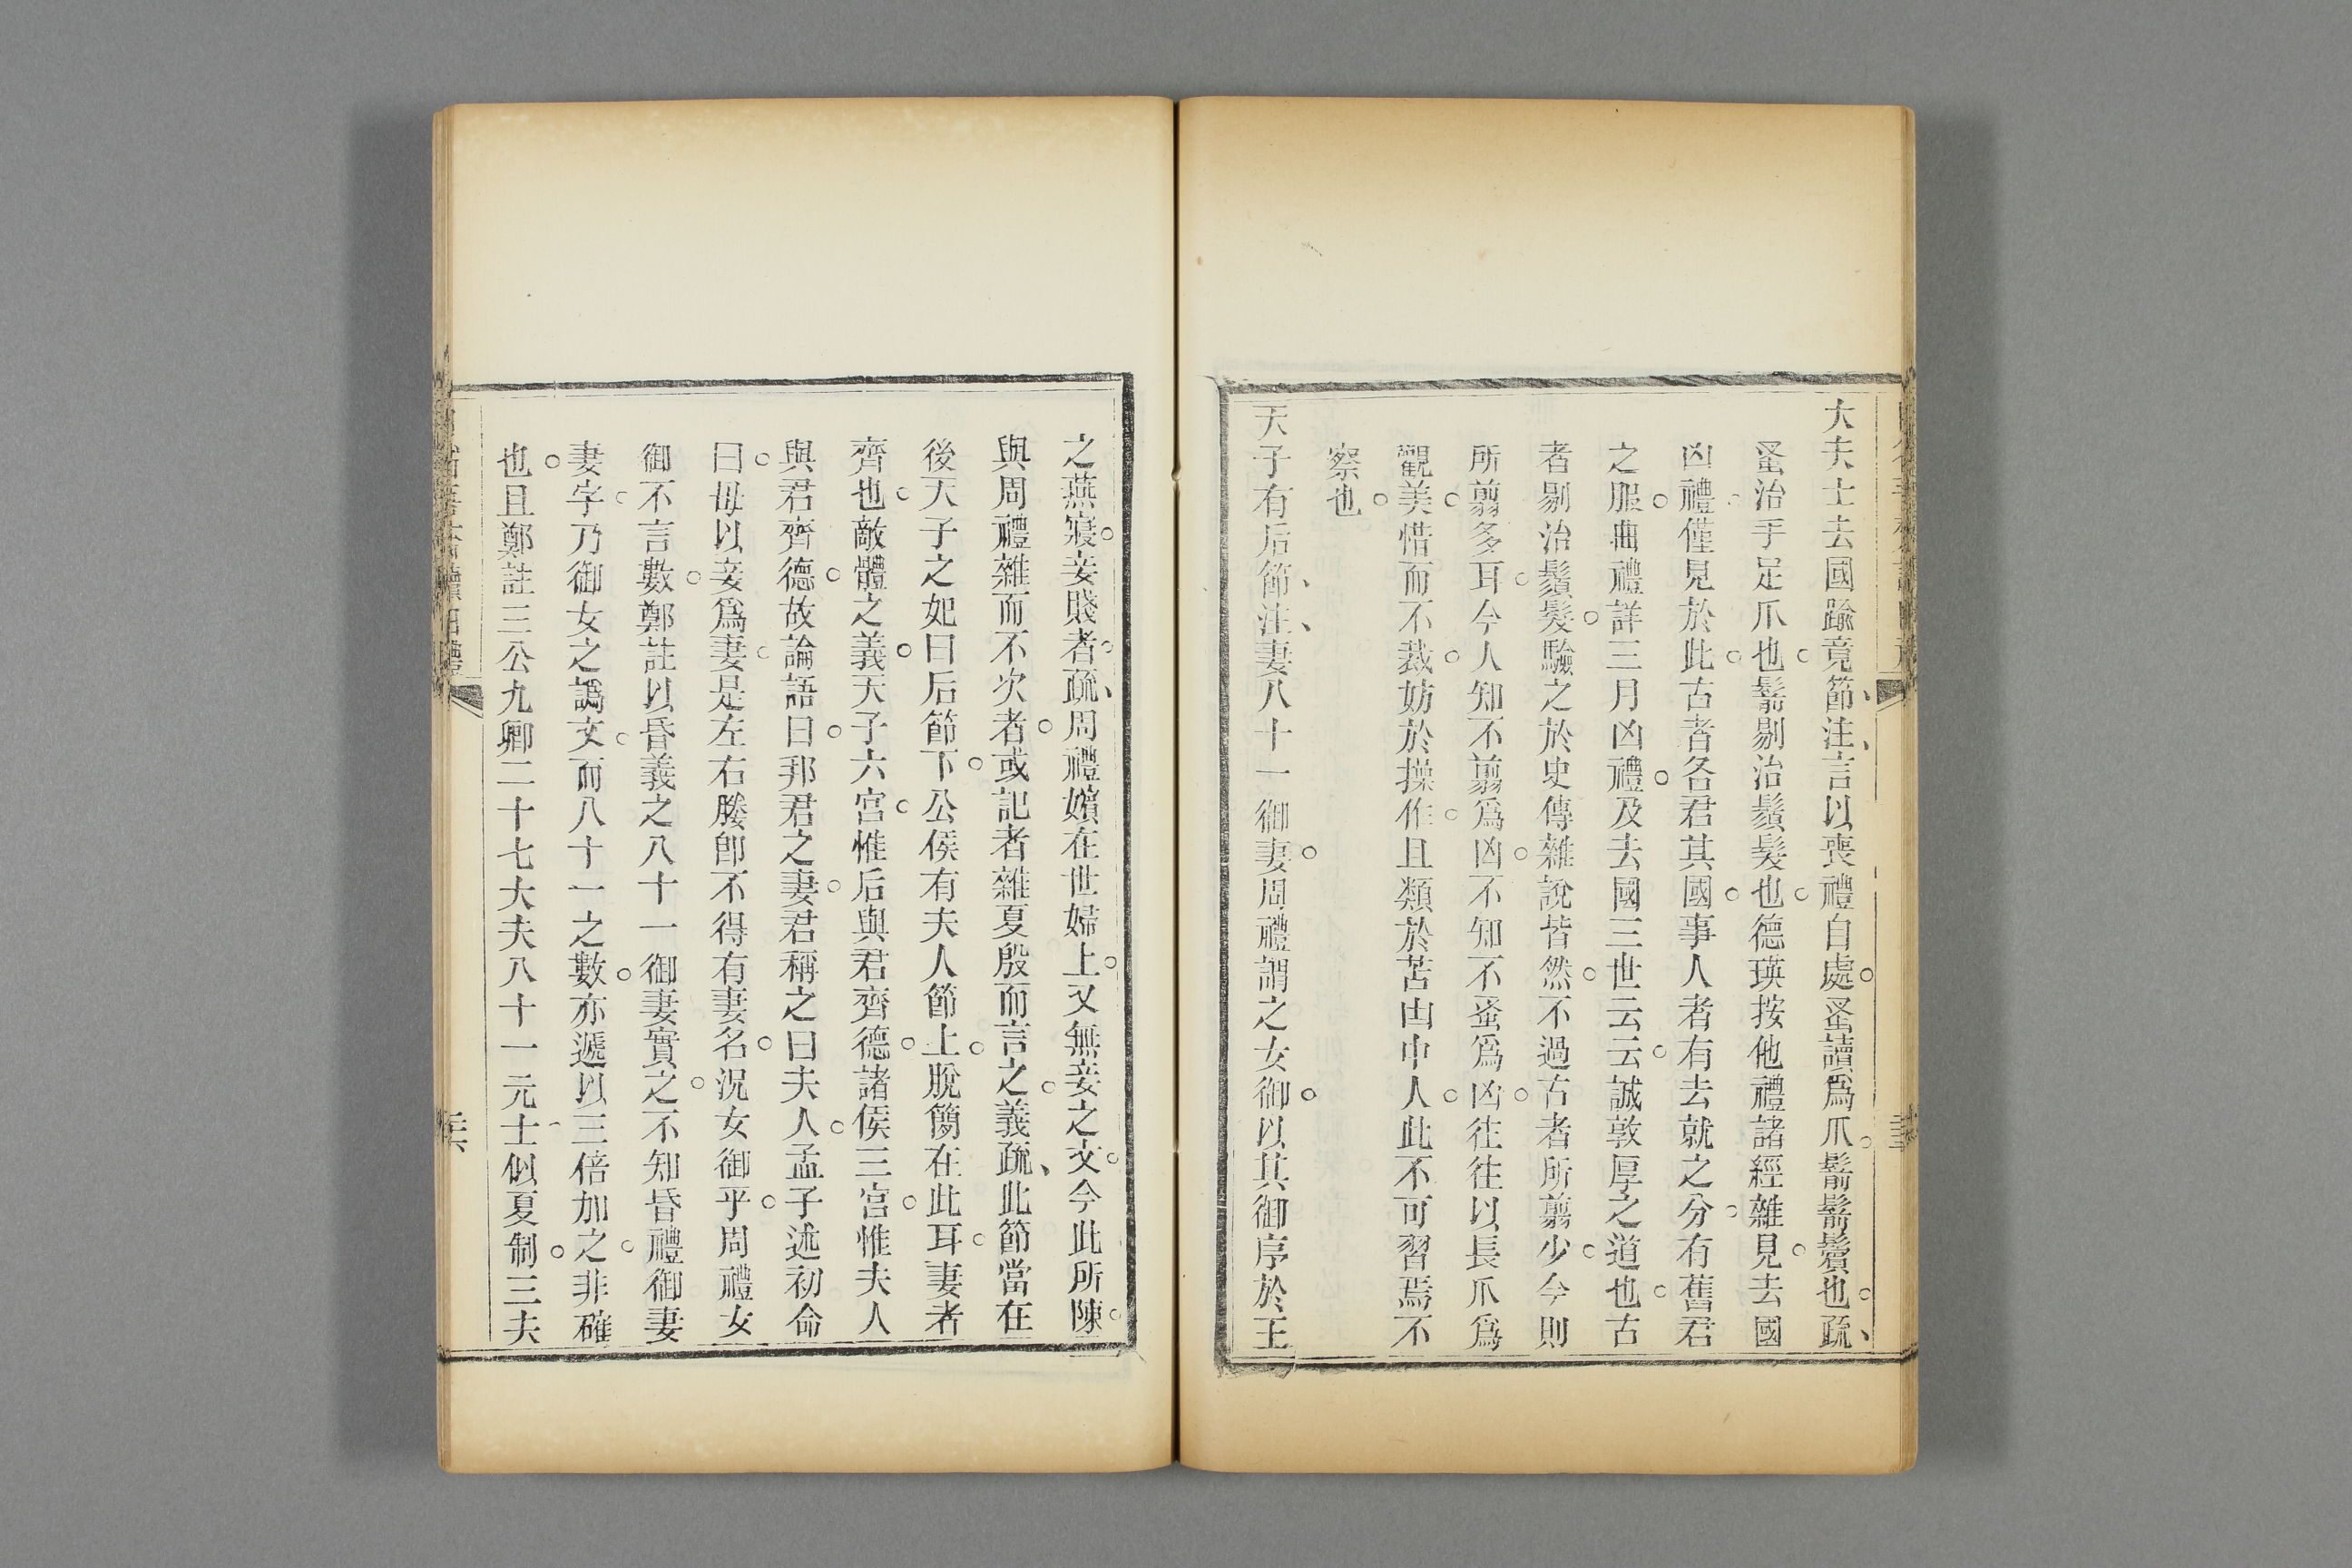 大夫士去國踰竟節、注、言以喪禮自處。蚤讀爲爪。鬋鬋鬢也。疏、
蚤治手足爪也。鬋剔治鬚髮也。德瑛按他禮諸經雜見。去國
凶禮。僅見於此。古者各君其國。事人者有去就之分。有舊君
之服。曲禮詳三月凶禮。及去國三世云云。誠敦厚之道也。古
者剔治鬚髮。驗之於史傳雜說皆然。不過古者所翦少。今則
所翦多耳。今人知不翦爲凶。不知不蚤爲凶。往往以長爪爲
觀美。惜而不裁。妨於操作。且類於苦凷中人。此不可習焉不
察也。
天子有后節、注、妻八十一御妻。周禮謂之女御。以其御序於王
之燕寢。妾賤者。疏、周禮嬪在世婦上。又無妾之文。今此所陳。
與周禮雜而不次者。或記者雜夏殷而言之。義疏、此節當在
後天子之妃曰后節下。公侯有夫人節上。脫簡在此耳。妻者
齊也。敵體之義。天子六宮。惟后與君齊德。諸侯三宮。惟夫人
與君齊德。故論語曰。邦君之妻。君稱之曰夫人。孟子述初命
曰。毋以妾爲妻。是左右媵卽不得有妻名。況女御乎。周禮女
御不言數。鄭註以昏義之八十一御妻實之。不知昏禮御妻
妻字。乃御女之譌文。而八十一之數。亦遞以三倍加之。非確
也。且鄭註三公九卿二十七大夫八十一元士似夏制。三夫